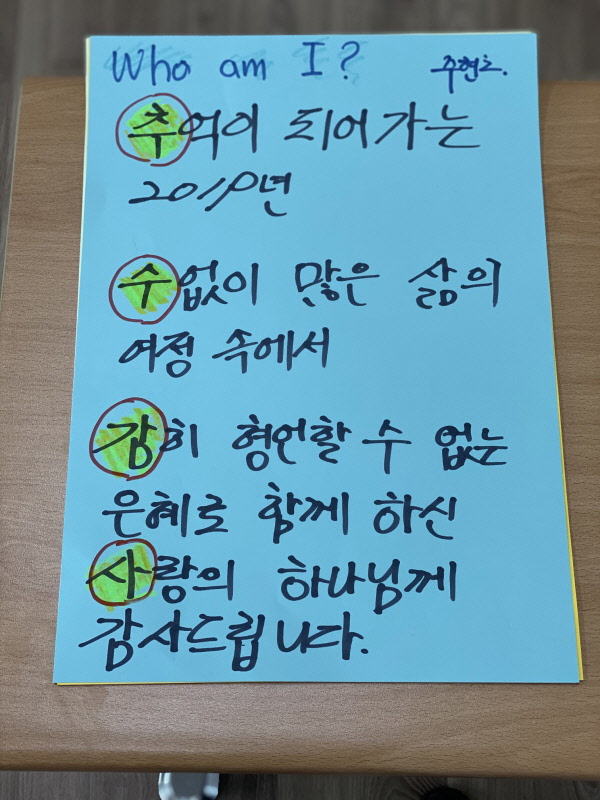 Who am I?
추억이 되어가는
2019년
수없이 많은 삶의
여정 속에서
감히 형언할 수 없는
은혜로 함께 하신
사랑의 하나님께
감사드립니다.